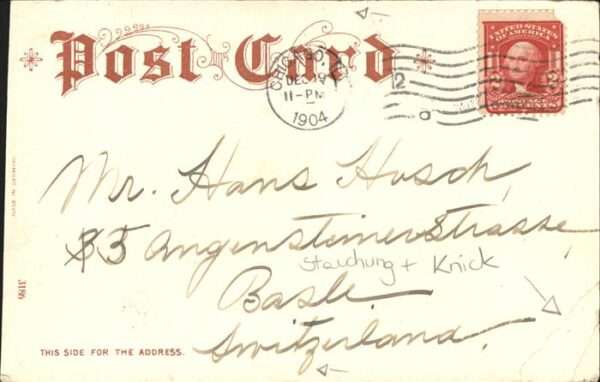 Post Card
CHICAGO, ILL.
DEC 19
11-PM
1904
2
UNITED STATES
OF AMERICA
2 2
POSTAGE
CENTS
Mr. Hans Hosch,
35 Angensteinerstrasse
Stauchung + Knick
Basle.
Switzerland.
3195
THIS SIDE FOR THE ADDRESS.